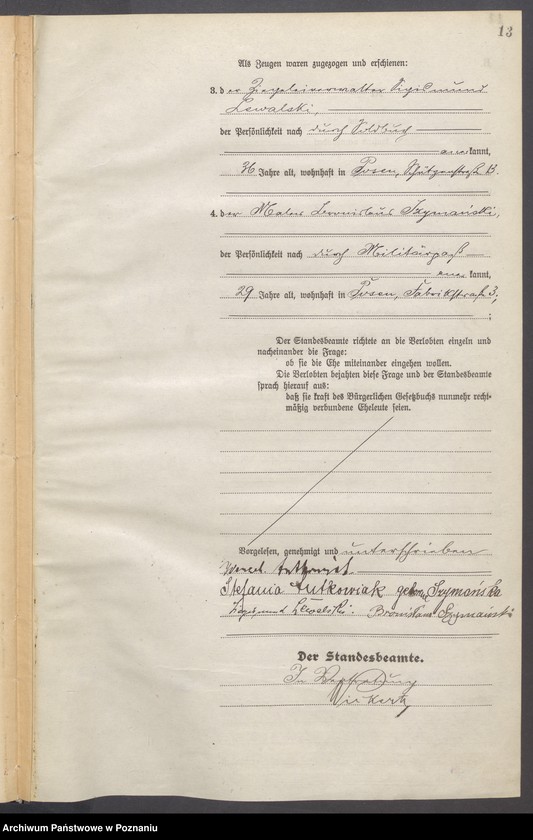 13
Als Zeugen waren zugezogen und erschienen:
3. der Ziegeleiverwalter Sigismund
Lewalski,
der Persönlichkeit nach durch Soldbuch
anerkannt,
36 Jahre alt, wohnhaft in Posen, Schützenstraße 13.
4. der Maler Bronislaus Szymański,
der Persönlichkeit nach durch Militärpaß
anerkannt,
29 Jahre alt, wohnhaft in Posen, Fabrikstraße 3,
;
Der Standesbeamte richtete an die Verlobten einzeln und
nacheinander die Frage:
ob sie die Ehe miteinander eingehen wollen.
Die Verlobten bejahten diese Frage und der Standesbeamte
sprach hierauf aus:
daß sie kraft des Bürgerlichen Gesetzbuchs nunmehr recht-
mäßig verbundene Eheleute seien.
Vorgelesen, genehmigt und unterschrieben
Stefania Antkowiak geborene Szymańska
Zygmunt Lewalski. Bronisław Szymański
Der Standesbeamte.
In Vertretung
Archiwum Państwowe w Poznaniu